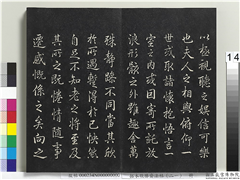 以極視聽之娛信可樂
也夫人之相與俯仰一
世或取諸懷抱悟言一
室之內或因寄所託放
浪形骸之外雖趣舍萬
殊靜躁不同當其欣
於所遇暫得於己快然
自足不知老之將至及
其所之既惓情隨事
遷感慨係之矣向之
14